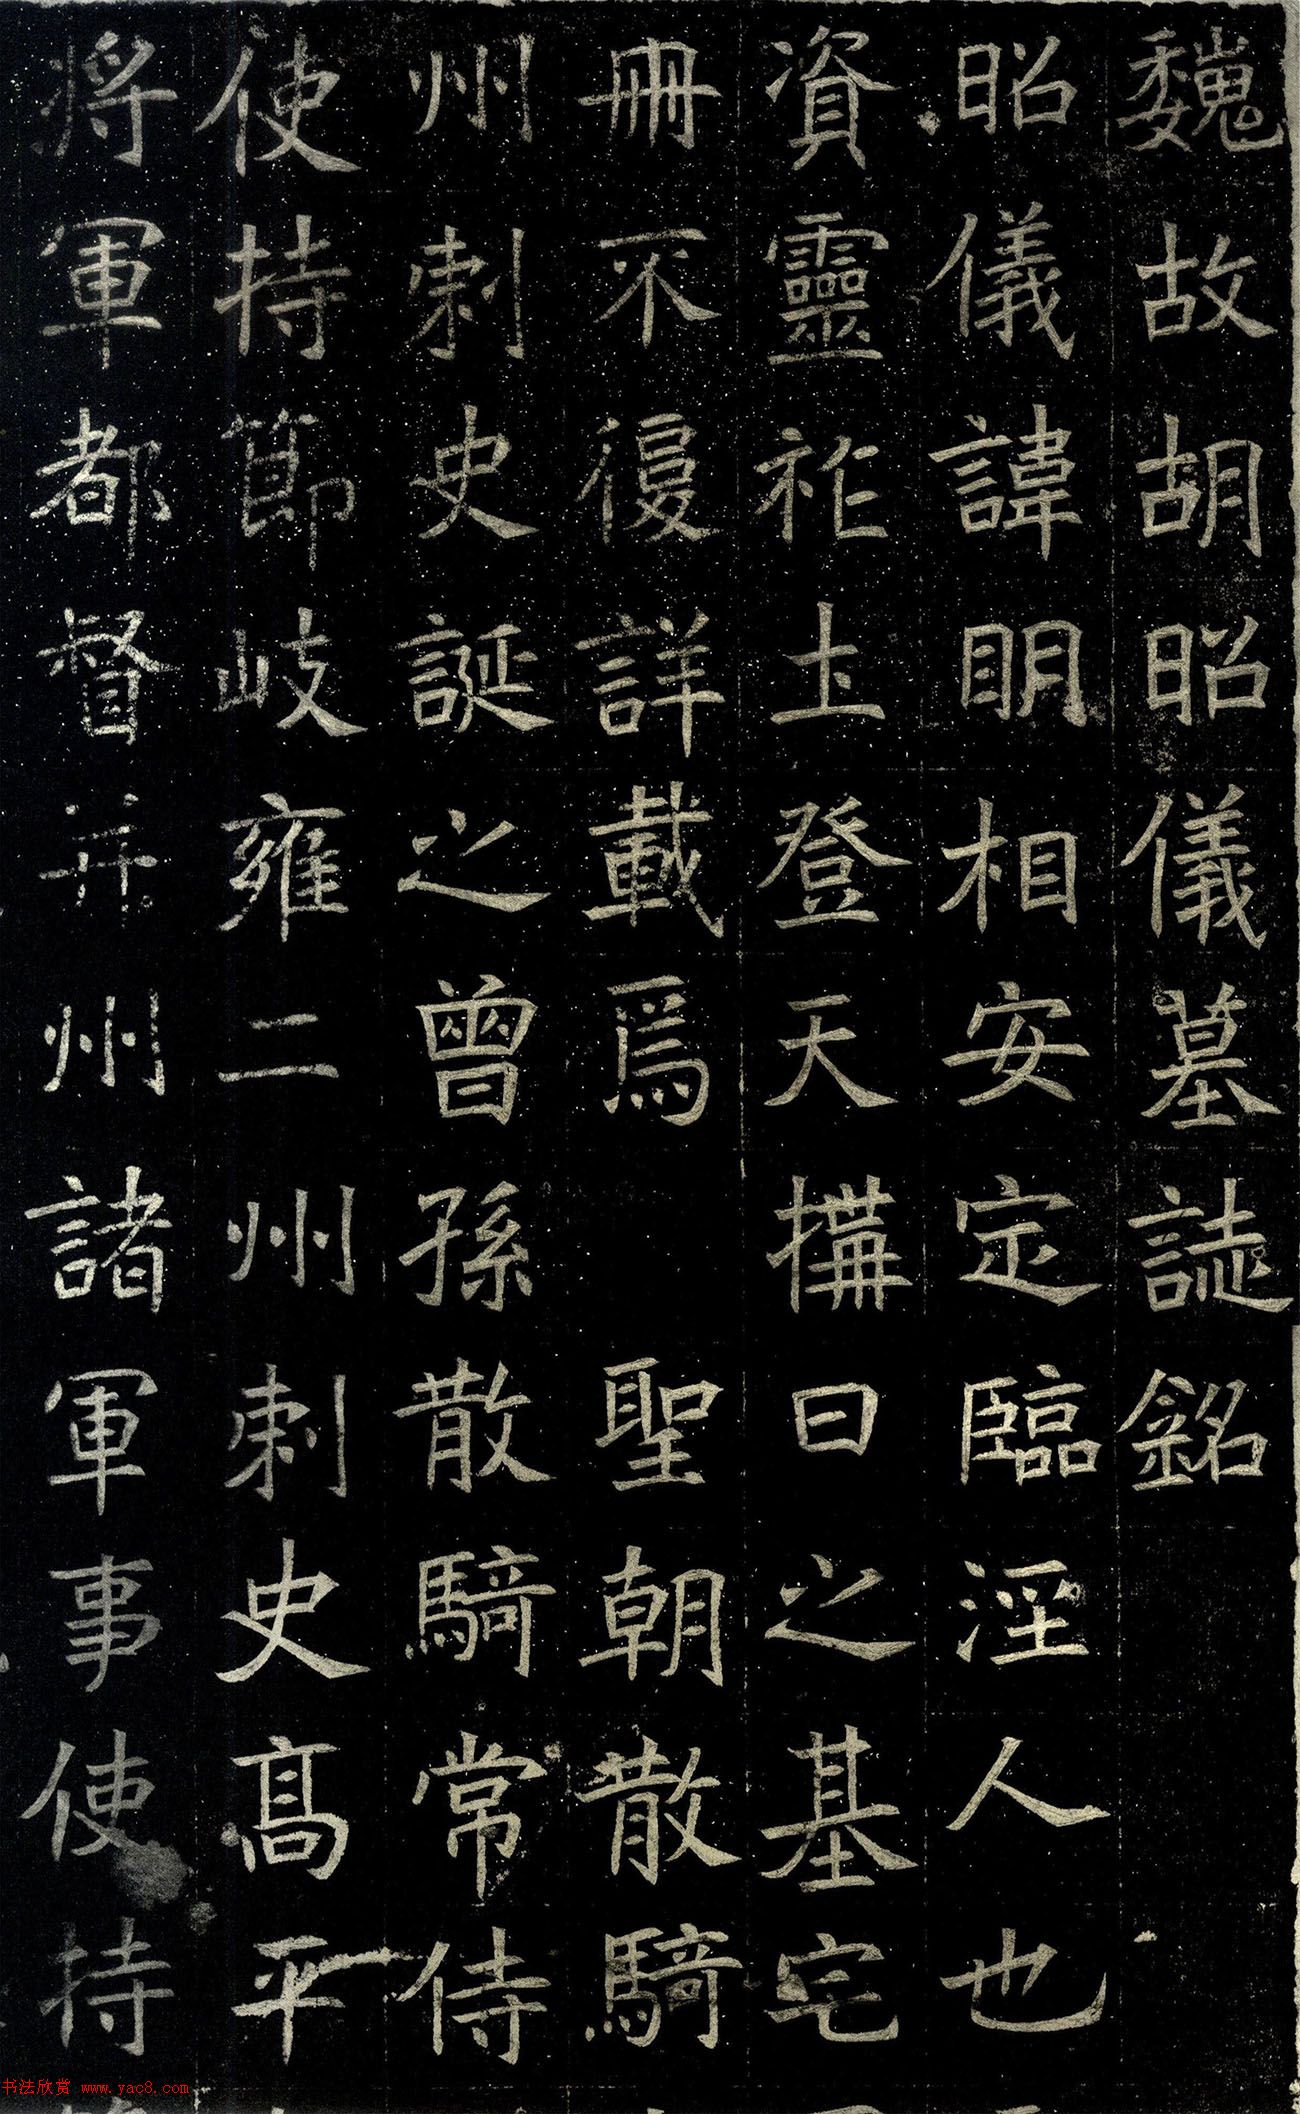 魏故胡昭儀墓誌銘
昭儀諱明相安定臨涇人也
資靈祚土登天構日之基宅
冊不復詳載爲聖朝散騎
州刺史誕之曾孫散騎常侍
使持節岐雍二州刺史高平
將軍都督并州諸軍事使持
书法欣赏 www.yac8.com